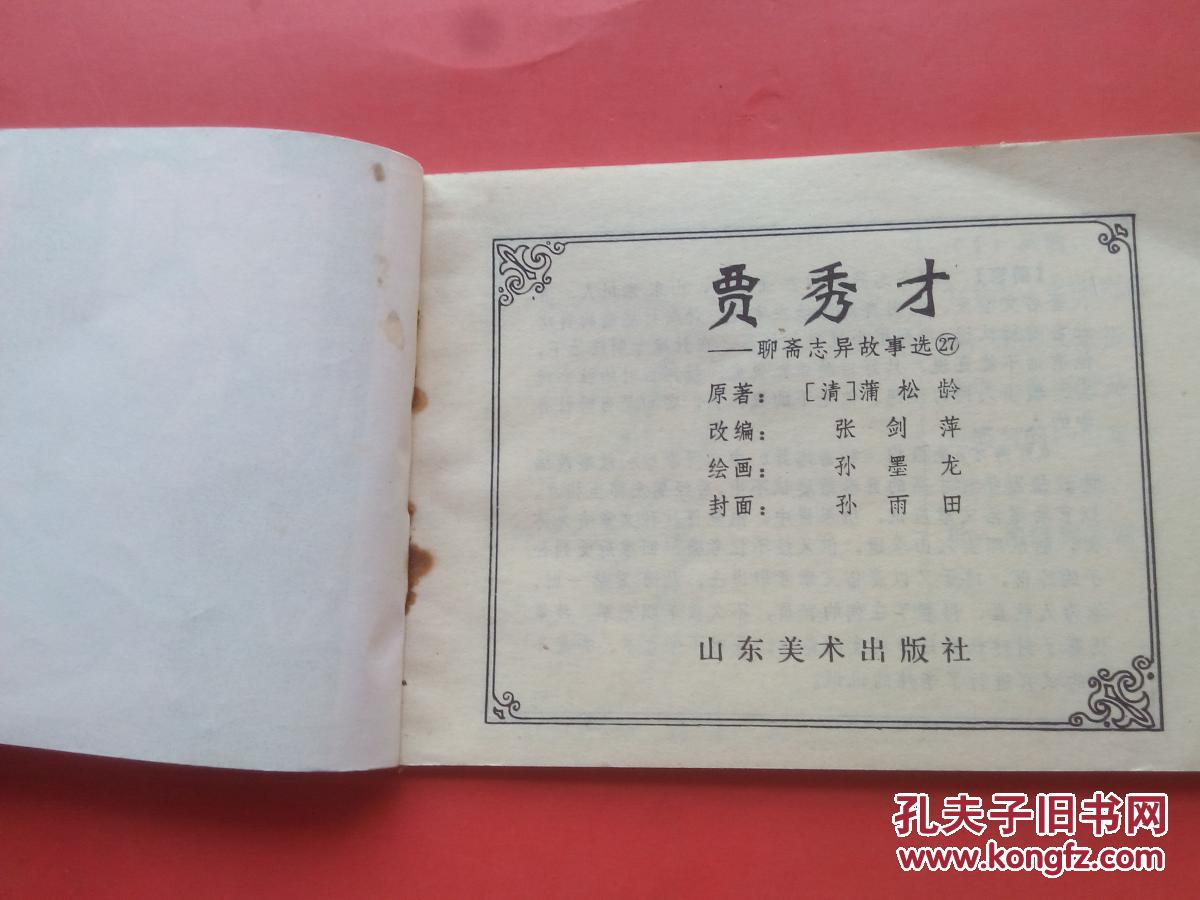 贾秀才
——聊斋志异故事选㉗
原著：［清］蒲松龄
改编：张剑萍
绘画：孙墨龙
封面：孙雨田
山东美术出版社
孔夫子旧书网
www.kongfz.com